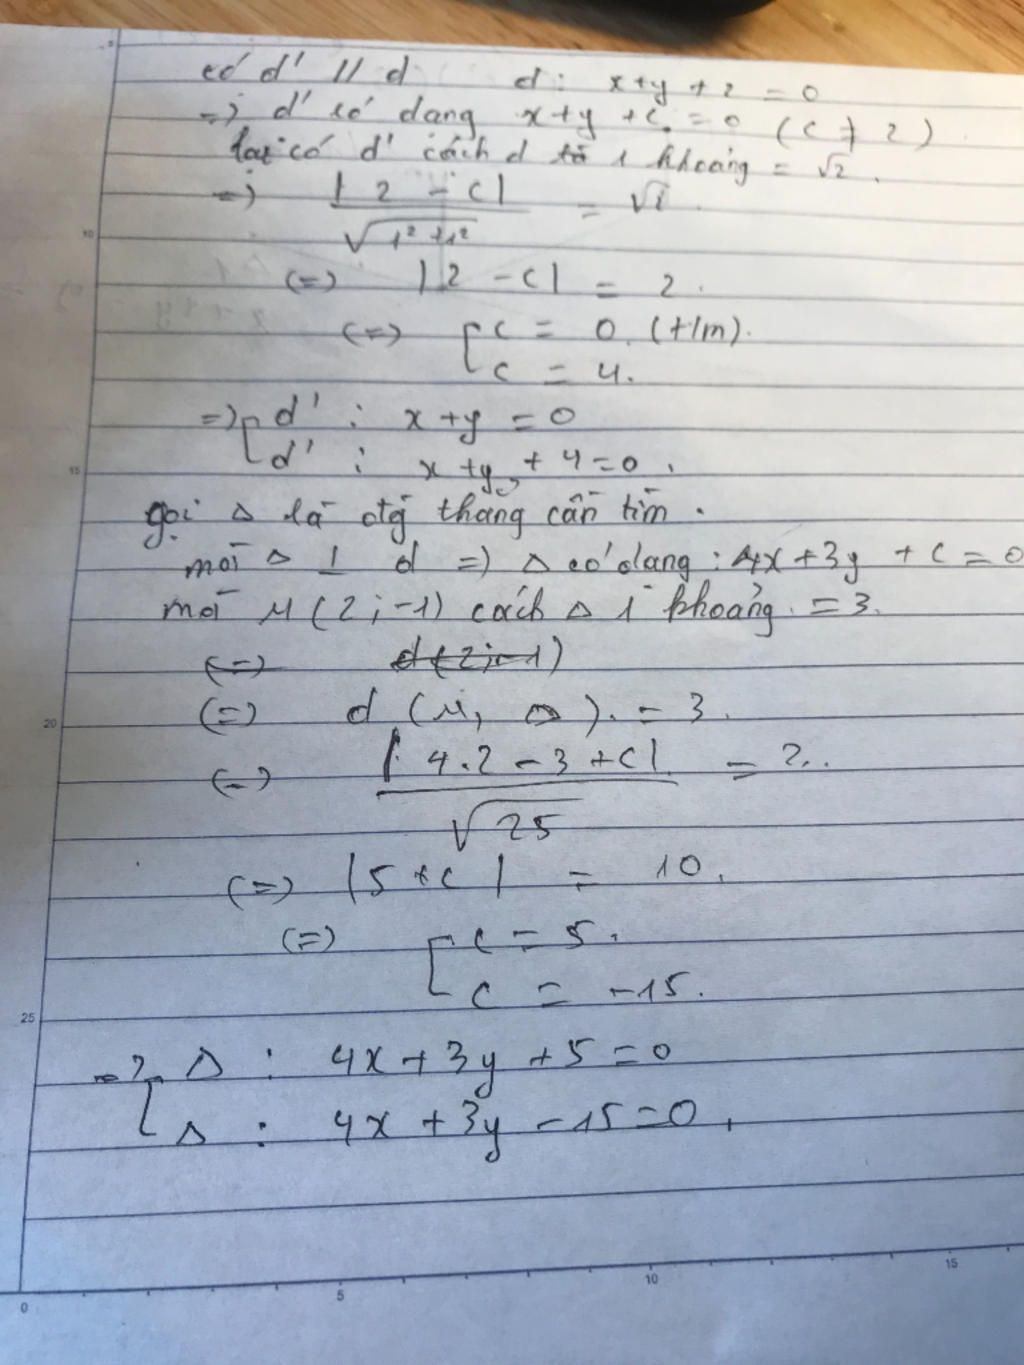 có d' // d d: x+y+2=0
=> d' có dạng x+y+c=0 (c ≠ 2)
lại có d' cách d 1 khoảng = √2.
=> |2-c| / √(1²+1²) = √2
(=) |2-c| = 2.
(=) [ c = 0 (t/m).
c = 4.
=> [ d' : x+y=0
d' : x+y+4=0.
gọi Δ là đtg thẳng cần tìm.
mà Δ ⊥ d => Δ có dạng : 4x+3y+c=0
mà M(2;-1) cách Δ 1 khoảng = 3.
(=) d(2;-1)
(=) d (M, Δ). = 3.
(=) |4.2-3+c| / √25 = 2.
(=) |5+c| = 10.
(=) [ c = 5.
c = -15.
=> [ Δ : 4x+3y+5=0
Δ : 4x+3y-15=0.
10
15
20
25
0 5 10 15